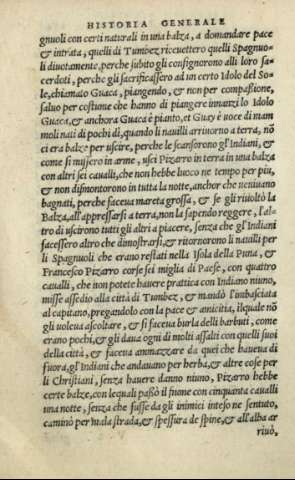 HISTORIA GENERALE
gnuoli con certi naturali in una balza, a domandare pace
& intrata, quelli di Tumbez riceuettero quelli Spagnuo-
li diuotamente, perche subito gli consignorno alli loro sa-
cerdoti, perche gli sacrificassero ad un certo Idolo del So-
le, chiamato Guaca, piangendo, & non per compassione,
saluo per costume che hanno di piangere innanzi lo Idolo
Guaca, & anchora Guaca è pianto, et Guay è uoce di mam
moli nati di pochi dì, quando li nauilli arriuorno a terra, nõ
ci era balze per uscire, perche le scansorno gl'Indiani, &
come si missero in arme, uscì Pizarro in terra in una balza
con altri sei caualli, che non hebbe luoco ne tempo per piu,
& non dismontorono in tutta la notte, anchor che ueniuano
bagnati, perche faceua mareta grossa, & se gli riuoltò la
Balza, all'appressarsi a terra, non la sapendo reggere, l'al-
tro dì uscirono tutti gli altri a piacere, senza che gl'Indiani
facessero altro che dimostrarsi, & ritornorono li nauilli per
li Spagnuoli che erano restati nella Isola della Puna, &
Francesco Pizarro corse sei miglia di Paese, con quattro
caualli, che non potete hauere prattica con Indiano niuno,
misse assedio alla città di Tumbez, & mandò l'imbasciata
al capitano, pregandolo con la pace & amicitia, ilquale nõ
gli uoleua ascoltare, & si faceua burla delli barbuti, come
erano pochi, & gli daua ogni dì molti assalti con quelli suoi
della città, & faceua ammazzare da quei che haueua di
fuora, gl'Indiani che andauano per herba, & altre cose per
li Christiani, senza hauere danno niuno, Pizarro hebbe
certe balze, con lequali passò il fiume con cinquanta caualli
una notte, senza che fusse da gli inimici inteso ne sentuto,
caminò per mala strada, & spessura de spine, & all'alba ar
riuò,